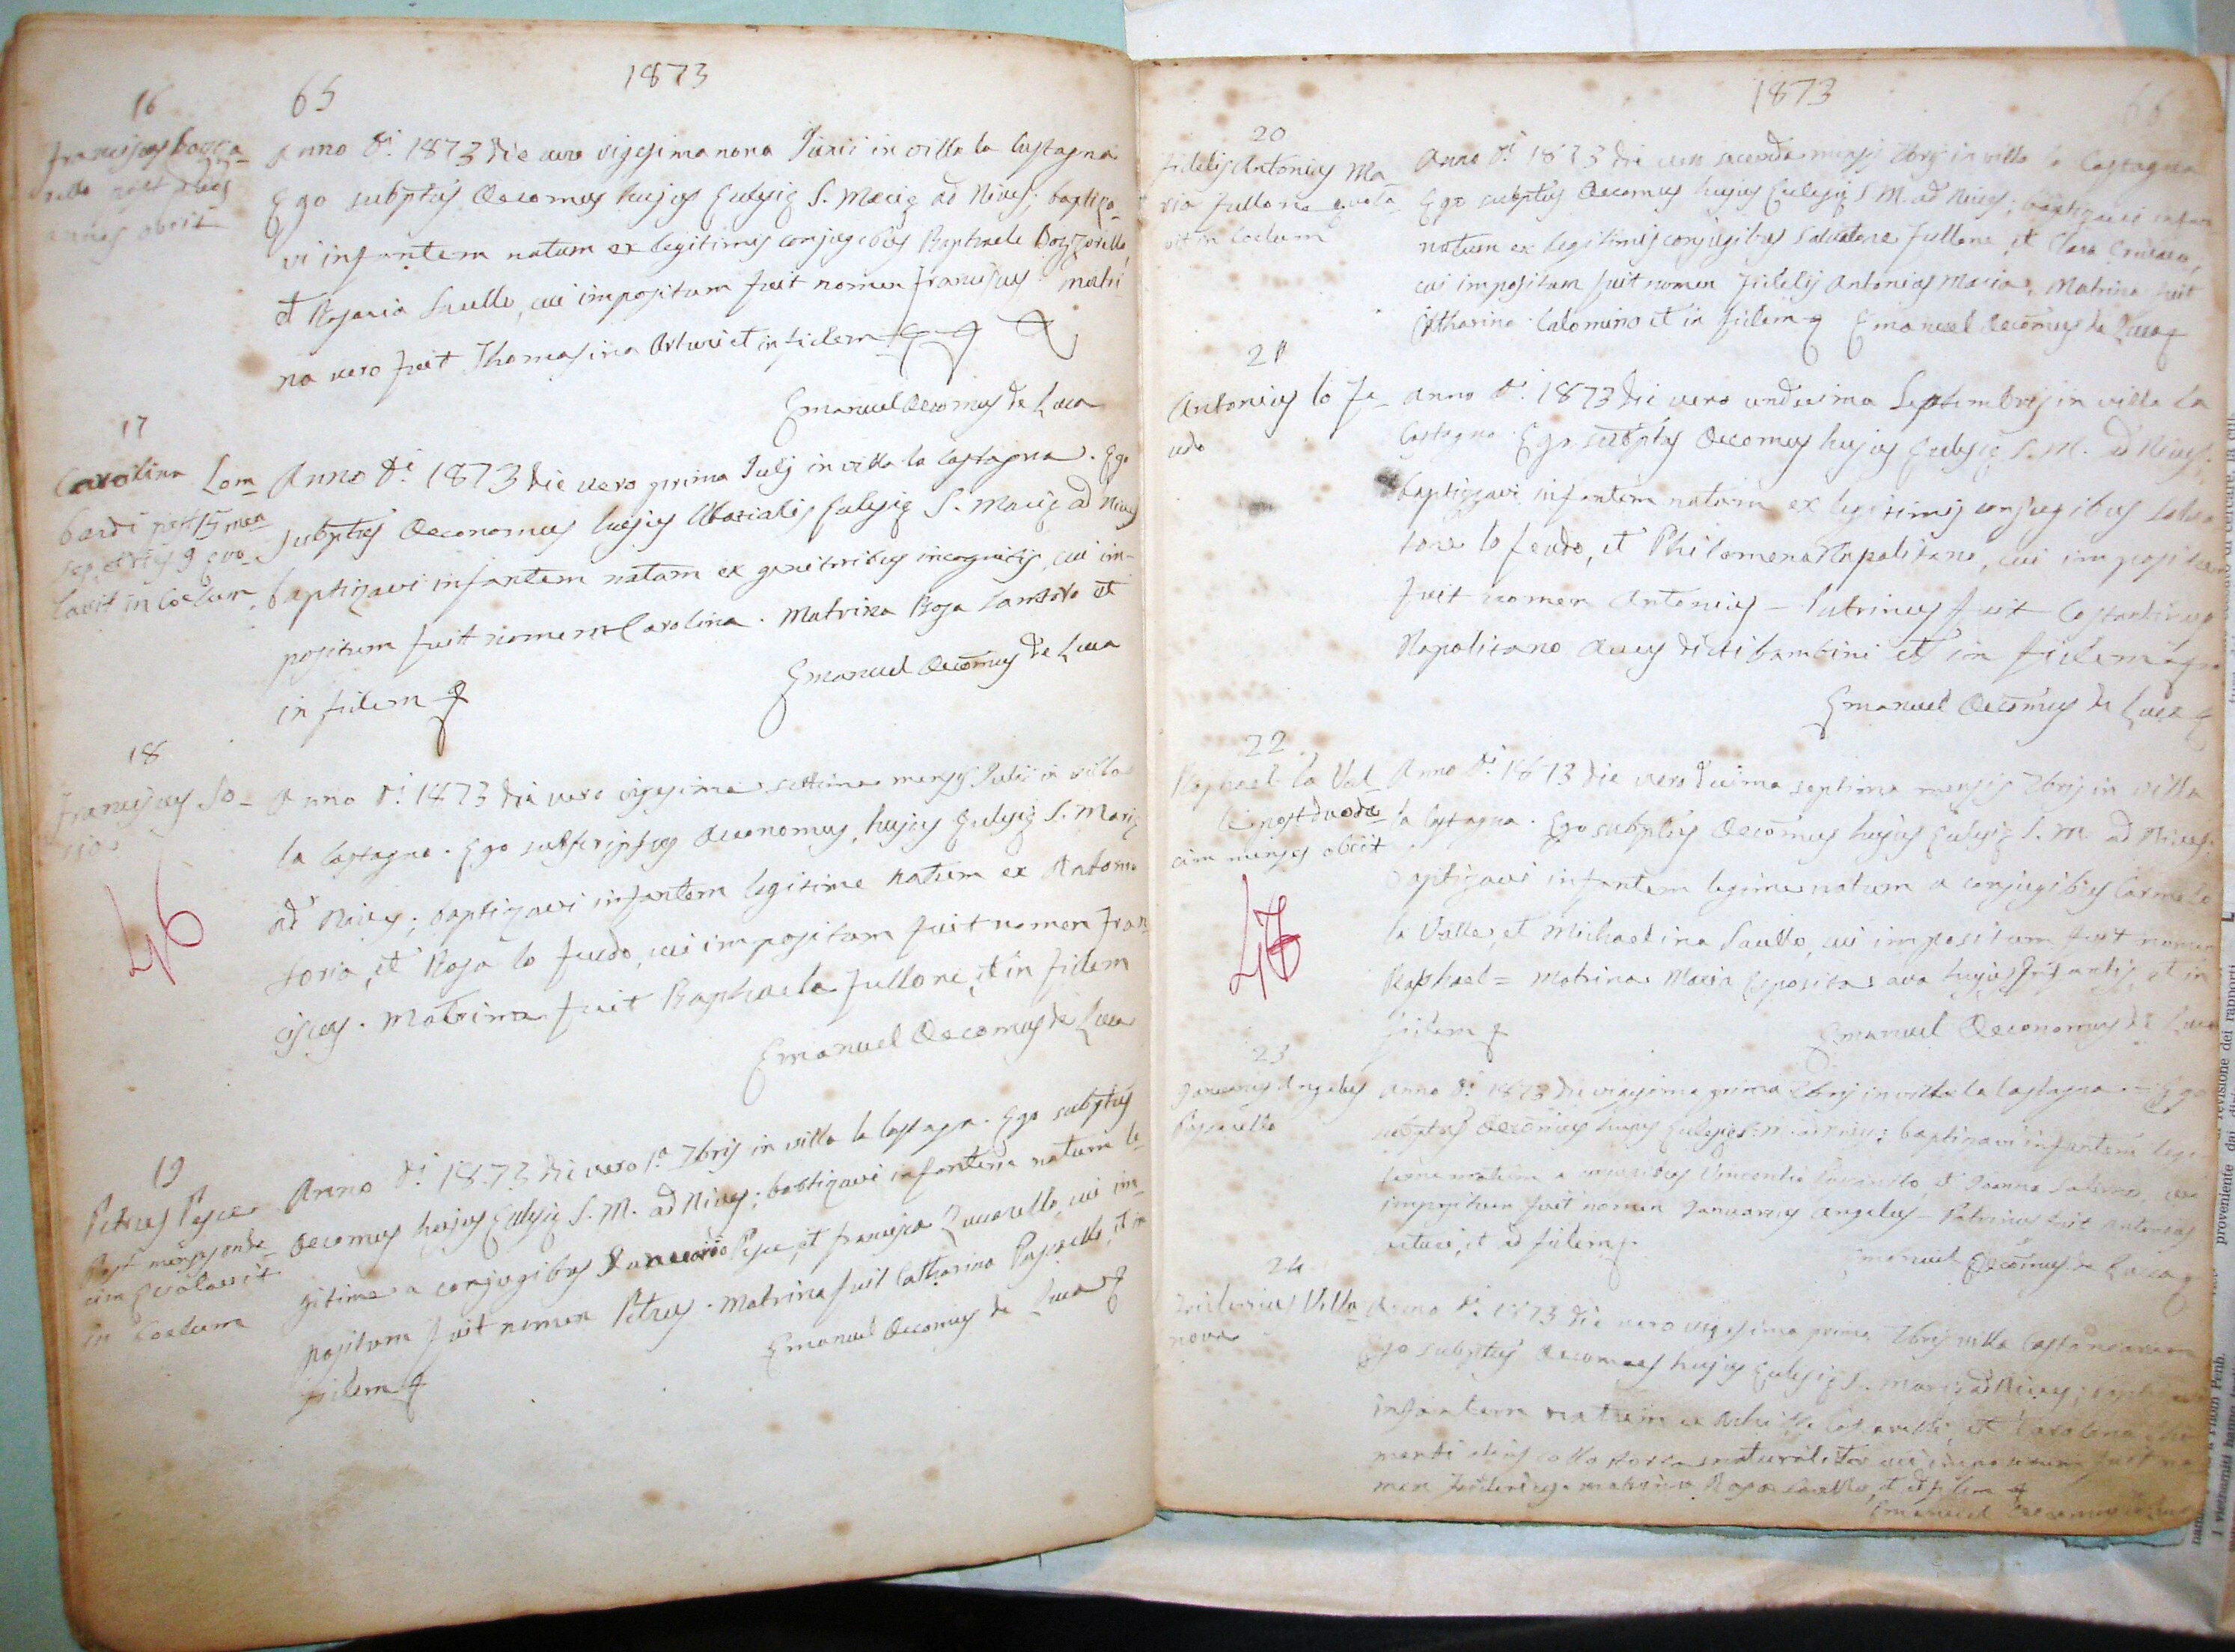 1873
65
16
Franciscus Bozza-
rello post duos
annos obiit
Anno D.i 1873 die vero vigesima nona Junii in villa la Castagna
Ego subptus Oecomus hujus Eulesię S. Marię ad Nives; baptiza-
vi infantem natum ex legitimis conjugibus Raphaele Bozzarello,
et Rosaria Saullo, cui impositum fuit nomen Franciscus. Matri-
na vero fuit Thomasina Arturi et in fidem
Emanuel Oecomus de Luca
17
Carolina Lom-
bardi post 15 men
ses, et dies 9 evo-
lavit in Coelum
Anno D.i 1873 die vero prima Julj in villa la Castagna. Ego
subptus Oeconomus hujus Eulesię S. Marię ad Nives
baptizavi infantem natam ex genitoribus incognitis, cui im-
positum fuit nomen Carolina. Matrina Rosa et
in fidem
Emanuel Oecomus de Luca
18
Franciscus So-
ria
46
Anno D.i 1873 die vero vigesima settima mensis Julii in villa
la Castagna. Ego subscriptus Oeconomus, hujus Eulesię S. Marię
ad Nives; baptizavi infantem legitime natum ex Antonio
Soria, et Rosa lo Feudo, cui impositum fuit nomen Fran-
ciscus. Matrina fuit Raphaela Fullone, et in fidem
Emanuel Oecomus de Luca
19
Petrus Pesce
Post menses unde-
cim Evolavit
in Coelum
Anno D.i 1873 die vero 1.a 7bris in villa la Castagn. Ego subptus
Oecomus hujus Eulesię S. M. ad Nives; babtizavi infantem natum le-
gitime a conjugibus Januario Pesce, et Francisca Zuccarello, cui im-
positum fuit nomen Petrus. Matrina fuit Catharina, et in
fidem
Emanuel Oecomus de Luca
1873
66
20
Fidelis Antonius Ma
ria Fullone evola-
vit in Coelum
Anno D.i 1873 die vero secunda mensis 7bris in villa la Castagna
Ego subptus Oecomus hujus Eulesię S M. ad Nives; baptizavi infan
natum ex legitimis conjugibus Salvatore Fullone, et Clara
cui impositum fuit nomen Fidelis Antonius Maria. Matrina fuit
Catharina Calomino et in fidem Emanuel Oecomus de Luca
21
Antonius lo Fe-
udo
Anno D.i 1873 die vero undecima Septembris in villa la
Castagna. Ego subptus Oecomus hujus Eulesię S. M. ad Nives;
baptizzavi infantem natum ex legitimis conjugibus Salva
tore lo feudo, et Philomena Napolitano, cui impositum
fuit nomen Antonius - Patrinus fuit Costantinus
Napolitano avus dicti bambini et in fidem
Emanuel Oecomus de Luca
22
Raphael la Val
le post duode-
cim menses obiit
47
Anno D.i 1873 die vero decima septima mensis 7bris in villa
la Castagna. Ego subptus Oecomus hujus Eulesię S. M. ad Nives;
baptizavi infantem natum a conjugibus Carmelo
la Valle, et Michaelina Saullo, cui impositum fuit nomen
Raphael = Matrina Maria Esposito ava hujus infantis, et in
fidem
Emanuel Oeconomus de Luca
23
Januarius Angelus
Anno D.i 1873 die vigesima prima 7bris in villa la Castagna. = Ego
subptus Oecomus hujus Eulesię S. M. ad Nives; baptizavi infantem legi-
time natum a conjugibus Vincentio et Joanna cui
impositum fuit nomen Januarius Angelus - Patrinus fuit Antonius
Arturi, et ad fidem
Emanuel Oecomus de Luca
24
Villa
nova
Anno D.i 1873 die vero vigesima prima 7bris villa
Ego subptus Oecomus hujus Eulesię S. Marię ad Nives;
infantem natum ex et Carolina
naturaliter cui impositum fuit no
men matrina Rosa Saullo, et ad fidem
Emanuel Oecomus de Luca